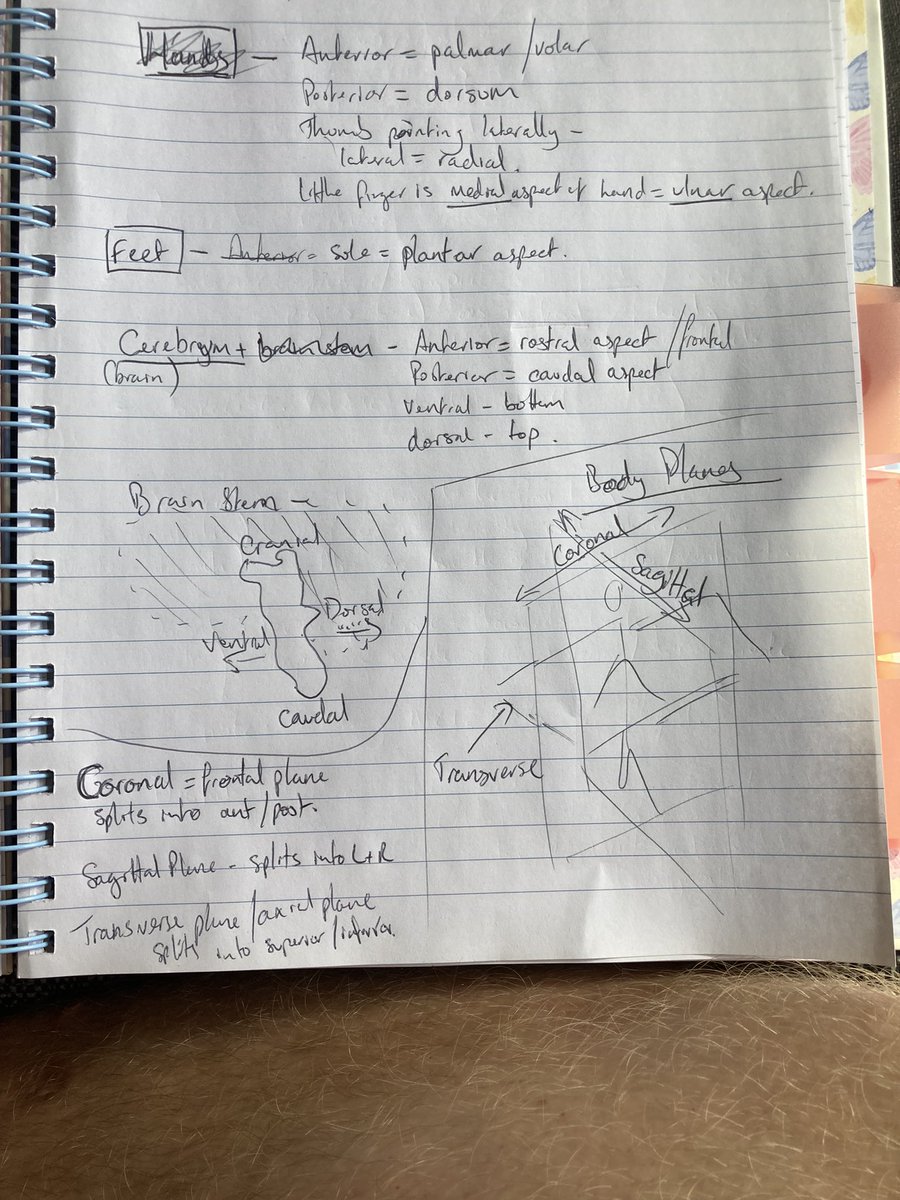 Hands - Anterior = palmar / volar
Posterior = dorsum
Thumb pointing laterally -
lateral = radial.
Little finger is medial aspect of hand = ulnar aspect.
Feet - Anterior = sole = plantar aspect.
Cerebrum + brainstem - Anterior = rostral aspect / frontal
(brain) Posterior = caudal aspect
ventral - bottom
dorsal - top.
Brain Stem -
Cranial
Dorsal
Ventral
Caudal
Body Planes
Coronal
Sagittal
Transverse
Coronal = frontal plane
splits into ant/post.
Sagittal Plane - splits into L+R
Transverse plane / axial plane
splits into superior / inferior.